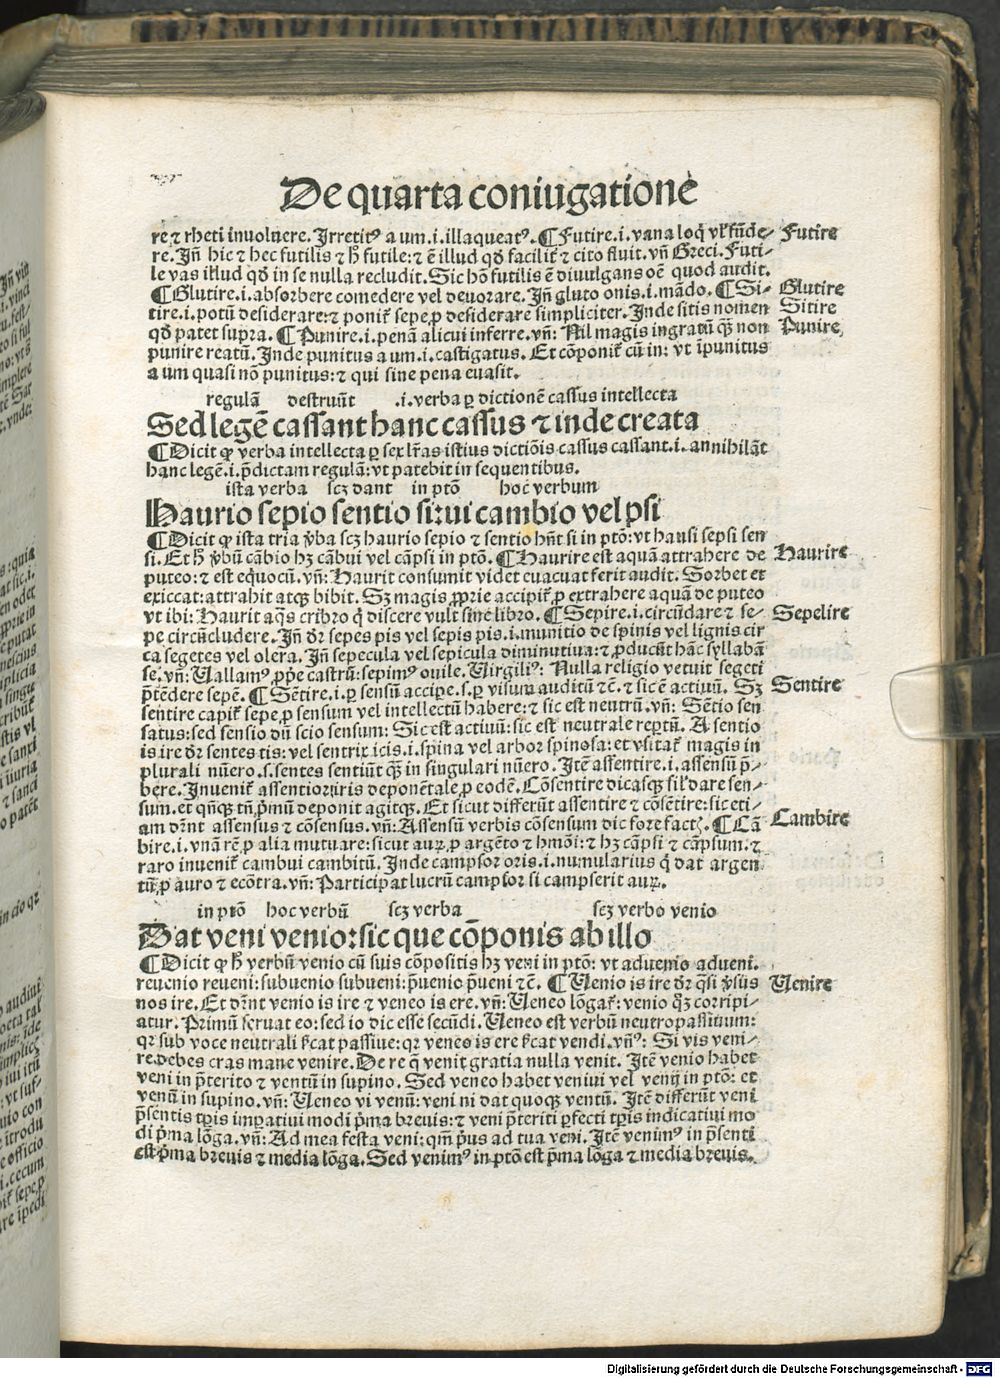 De quarta coniugatione
re ⁊ rheti inuoluere. Irretitꝰ a um .i. illaqueatꝰ. ¶ Futire .i. vana loq̄ vl' fūde⸗ Futire
re. Jn̄ hic ⁊ hec futilis ⁊ h̄ futile: ⁊ ē illud qd̄ facilit̄ ⁊ cito fluit. vn̄ Greci. Futi⸗
le vas illud qd̄ in se nulla recludit. Sic hō futilis ē diuulgans oē quod audit.
¶ Glutire .i. absorbere comedere vel deuorare. Jn̄ gluto onis .i. mādo. ¶ Si⸗ Glutire
tire .i. potū desiderare: ⁊ ponit̄ sepe ꝓ desiderare simpliciter. Inde sitis nomen Sitire
qd̄ patet supra. ¶ Punire .i. penā alicui inferre. vn̄: Nil magis ingratū q̄ꝫ non Punire
punire reatū. Inde punitus a um .i. castigatus. Et cōponit̄ cū in: vt īpunitus
a um quasi nō punitus: ⁊ qui sine pena euasit.
regulā destruūt .i. verba ꝑ dictionē cassus intellecta
Sed legē cassant hanc cassus ⁊ inde creata
¶ Dicit ꝙ verba intellecta ꝑ sex lr̄as istius dictiōis cassus cassant .i. annihilāt
hanc legē .i. p̄dictam regulā: vt patebit in sequentibus.
ista verba scꝫ dant in ptō hoc verbum
Haurio sepio sentio si: ui cambio vel psi
¶ Dicit ꝙ ista tria v̄ba scꝫ haurio sepio ⁊ sentio hn̄t si in ptō: vt hausi sepsi sen
si. Et h̄ v̄bū cābio hꝫ cābui vel cāpsi in ptō. ¶ Haurire est aquā attrahere de Haurire
puteo: ⁊ est equocū. vn̄: Haurit consumit videt euacuat ferit audit. Sorbet et
exiccat: attrahit atqꝫ bibit. Sꝫ magis ꝓprie accipit̄ ꝓ extrahere aquā de puteo
vt ibi: Haurit aq̄s cribro q̄ discere vult sine libro. ¶ Sepire .i. circūdare ⁊ se⸗ Sepelire
pe circūcludere. Jn̄ dr̄ sepes pis vel sepis pis .i. munitio de spinis vel lignis cir
ca segetes vel olera. Jn̄ sepecula vel sepicula diminutiua: ⁊ ꝓducūt hāc syllabā
se. vn̄: Uallamꝰ ꝓpe castrū: sepimꝰ ouile. Uirgiliꝰ: Nulla religio vetuit segeti
p̄tēdere sepē. ¶ Sētire .i. ꝑ sensū accipe .s. ꝑ visum auditū ⁊c̄. ⁊ sic ē actiuū. Sꝫ Sentire
sentire capit̄ sepe ꝓ sensum vel intellectū habere: ⁊ sic est neutrū. vn̄: Sētio sen
satus: sed sensio dū scio sensum: Sic est actiuū: sic est neutrale reptū. A sentio
is ire dr̄ sentes tis: vel sentrix icis .i. spina vel arbor spinosa: et vsitat̄ magis in
plurali nūero .s. sentes sentiūt q̄ꝫ in singulari nūero. Itē assentire .i. assensū p̄⸗
bere. Inuenit̄ assentior iris deponētale ꝓ eodē. Cōsentire dicasqꝫ sil' dare sen⸗
sum. et qn̄qꝫ tn̄ p̄mū deponit agitqꝫ. Et sicut differūt assentire ⁊ cōsētire: sic eti⸗
am dr̄nt assensus ⁊ cōsensus. vn̄: Assensū verbis cōsensum dic fore factꝭ. ¶ Cā Cambire
bire .i. vnā rē ꝓ alia mutuare: sicut auꝝ ꝓ argēto ⁊ hmōi: ⁊ hꝫ cāpsi ⁊ cāpsum. ⁊
raro inuenit̄ cambui cambitū. Inde campsor oris .i. numularius q̄ dat argen
tū ꝓ auro ⁊ ecōtra. vn̄: Participat lucrū campsor si campserit auꝝ.
in ptō hoc verbū scꝫ verba scꝫ verbo venio
Dat veni venio: sic que cōponis ab illo
¶ Dicit ꝙ h̄ verbū venio cū suis cōpositis hꝫ veni in ptō: vt aduenio adueni.
reuenio reueni: subuenio subueni: p̄uenio p̄ueni ⁊c̄. ¶ Uenio is ire dr̄ q̄si v̄sus Uenire
nos ire. Et dr̄nt venio is ire ⁊ veneo is ere. vn̄: Ueneo lōgat̄: venio qꝫ corripi⸗
atur. Primū seruat eo: sed io dic esse secūdi. Ueneo est verbū neutropassiuum:
qꝛ sub voce neutrali s̄cat passiue: qꝛ veneo is ere s̄cat vendi. vn̄ꝰ: Si vis veni⸗
re debes cras mane venire. De re q̄ venit gratia nulla venit. Itē venio habet
veni in p̄terito ⁊ ventū in supino. Sed veneo habet veniui vel venij in ptō: et
venū in supino. vn̄: Ueneo vi venū: veni ni dat quoqꝫ ventū. Itē differūt veni
p̄sentis tꝑis imꝑatiui modi p̄ma breuis: ⁊ veni p̄teriti ꝑfecti tꝑis indicatiui mo
di p̄ma lōga. vn̄: Ad mea festa veni: qm̄ p̄us ad tua veni. Itē venimꝰ in p̄senti
est p̄ma breuis ⁊ media lōga. Sed venimꝰ in ptō est p̄ma lōga ⁊ media breuis.
Digitalisierung gefördert durch die Deutsche Forschungsgemeinschaft - DFG